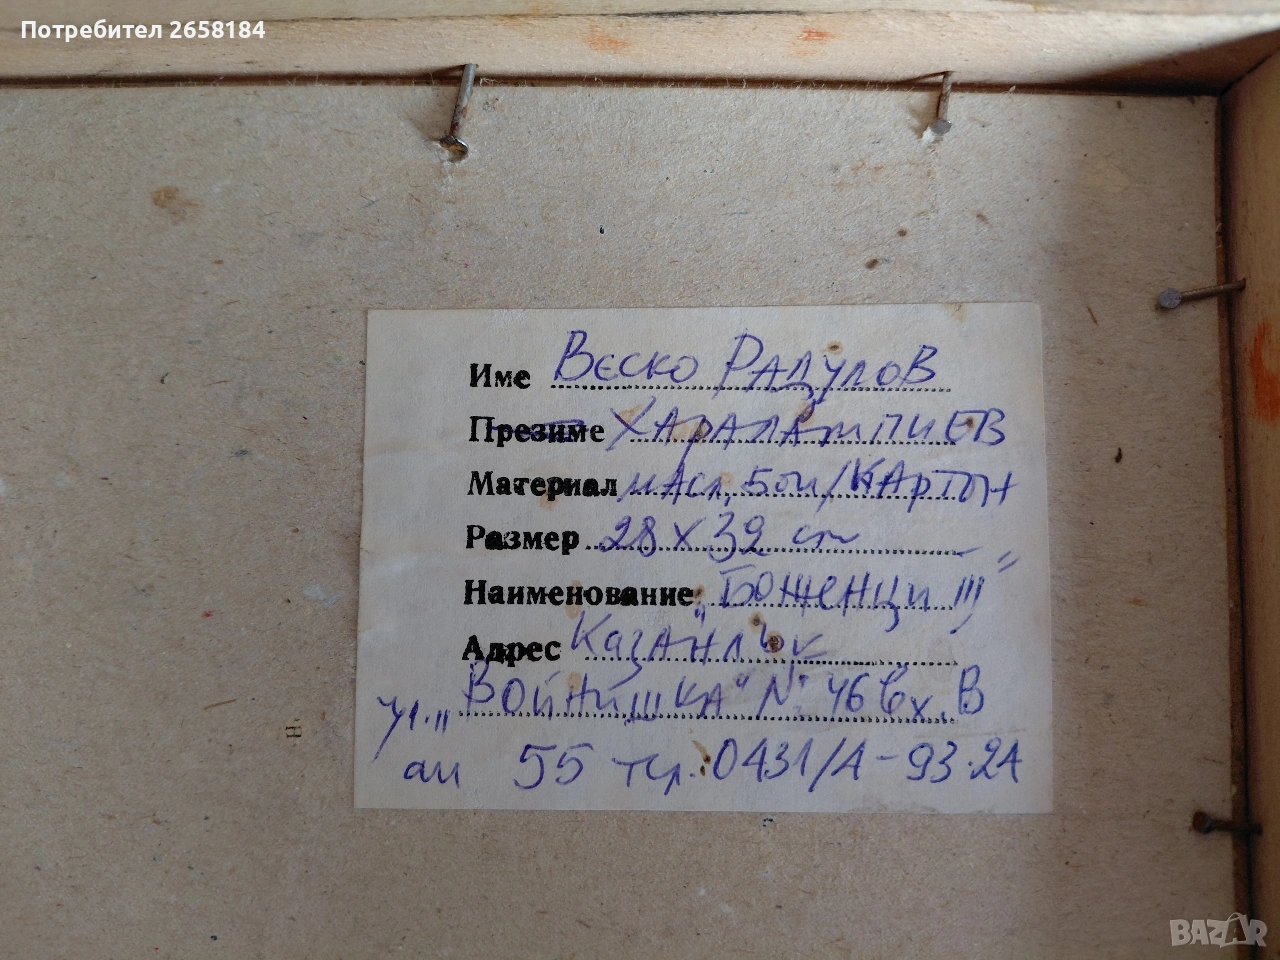 Потребител 2658184
Име Веско Радулов
Презиме Харалампиев
Материал масл. бои/картон
Размер 28 х 39 cm
Наименование "Боженци III"
Адрес Казанлък
ул. "Войнишка" № 46 вх. В
ап 55 тел. 0431/4-93-24
BAZAR